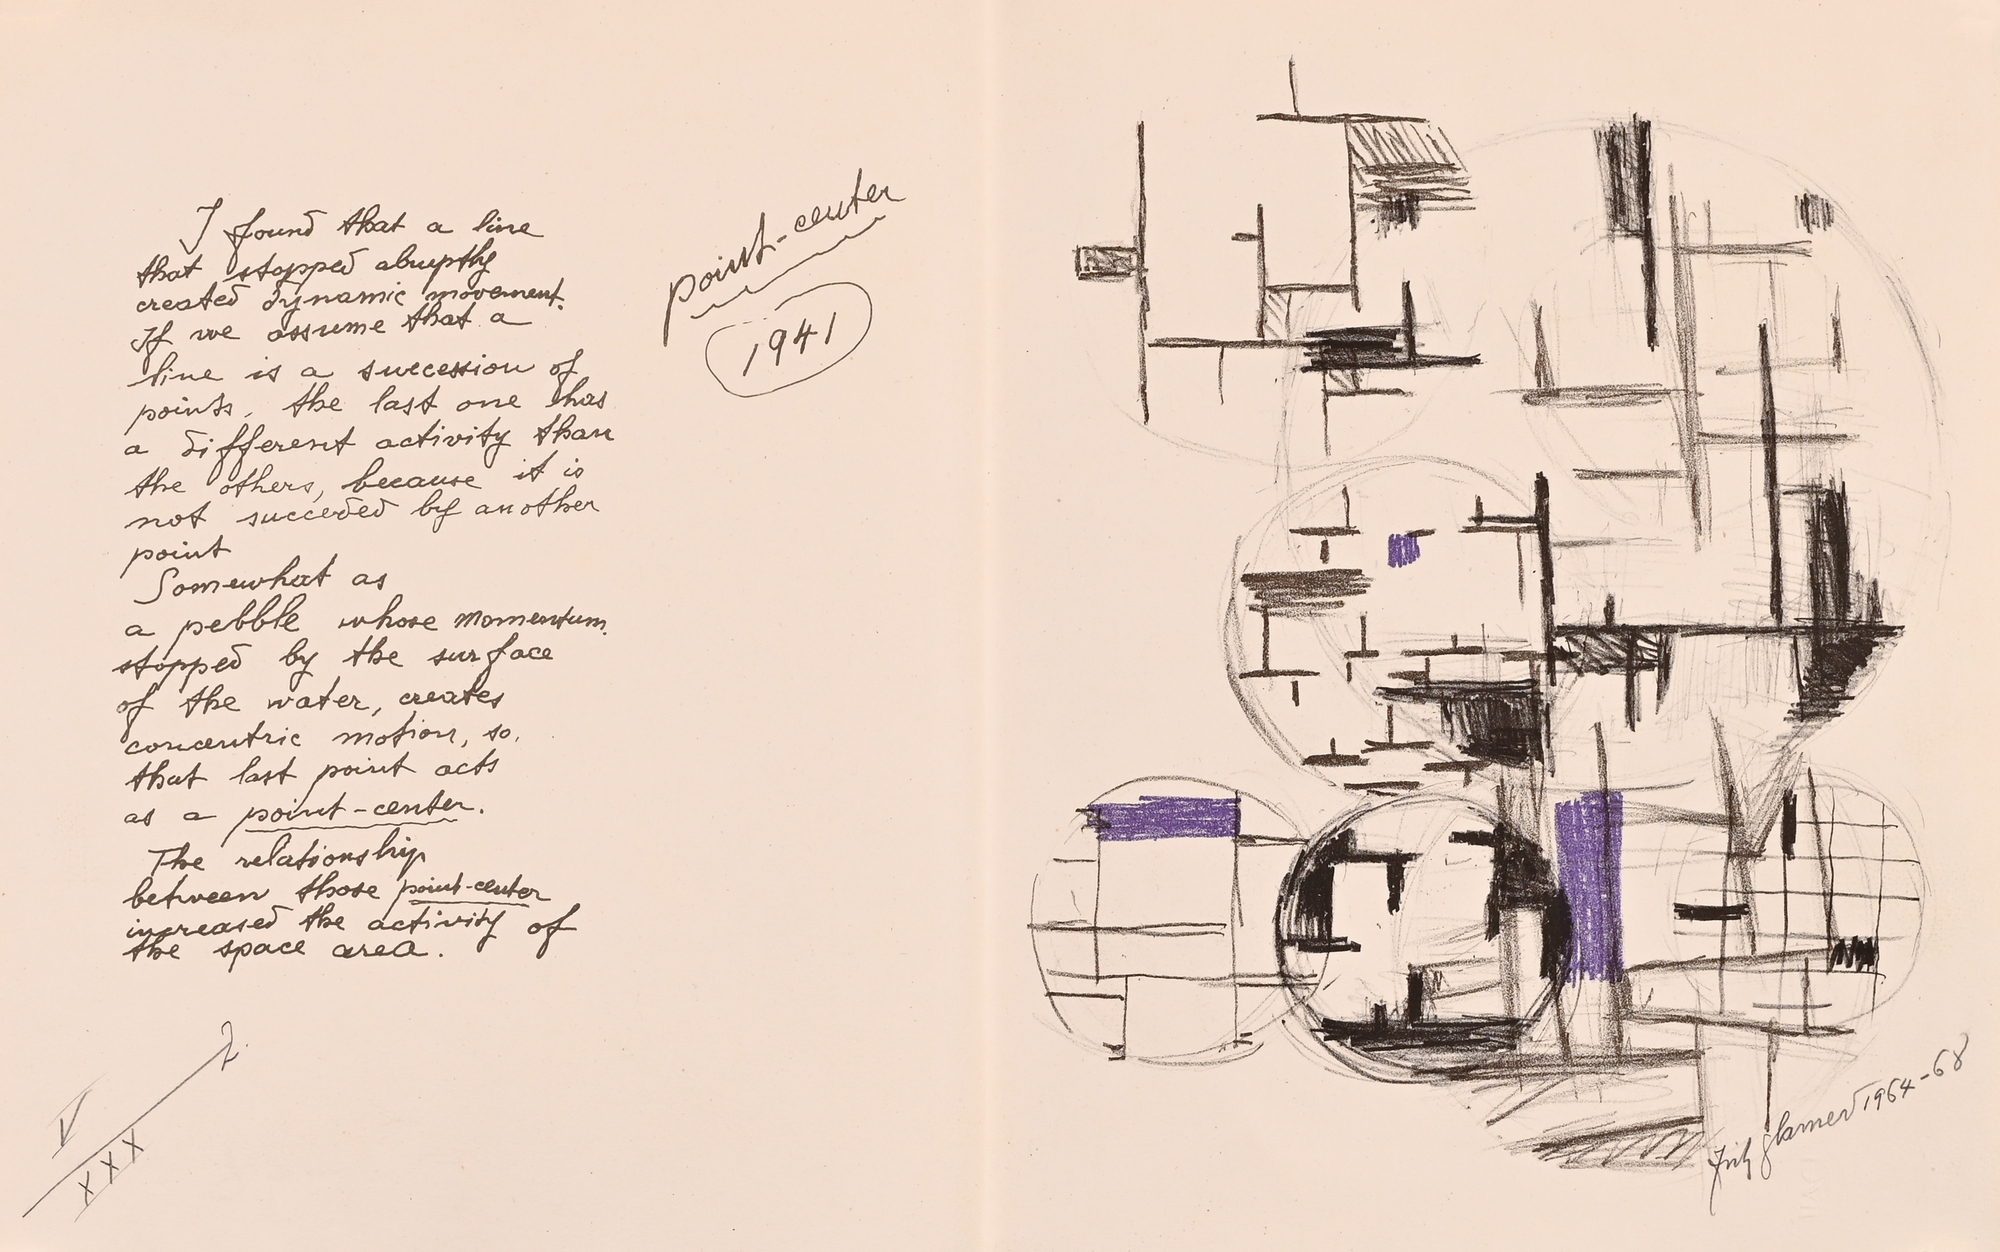 I found that a line
that stopped abrupthy
created dynamic movement.
If we assume that a
line is a succession of
points, the last one has
a different activity than
the others, because it is
not succeeded by another
point
Somewhat as
a pebble whose momentum
stopped by the surface
of the water, creates
concentric motion, so,
that last point acts
as a point-center.
The relationship
between those point-center
increased the activity of
the space area.
point-center
1941
V
XXX
2
Fritz Glarner 1964-68